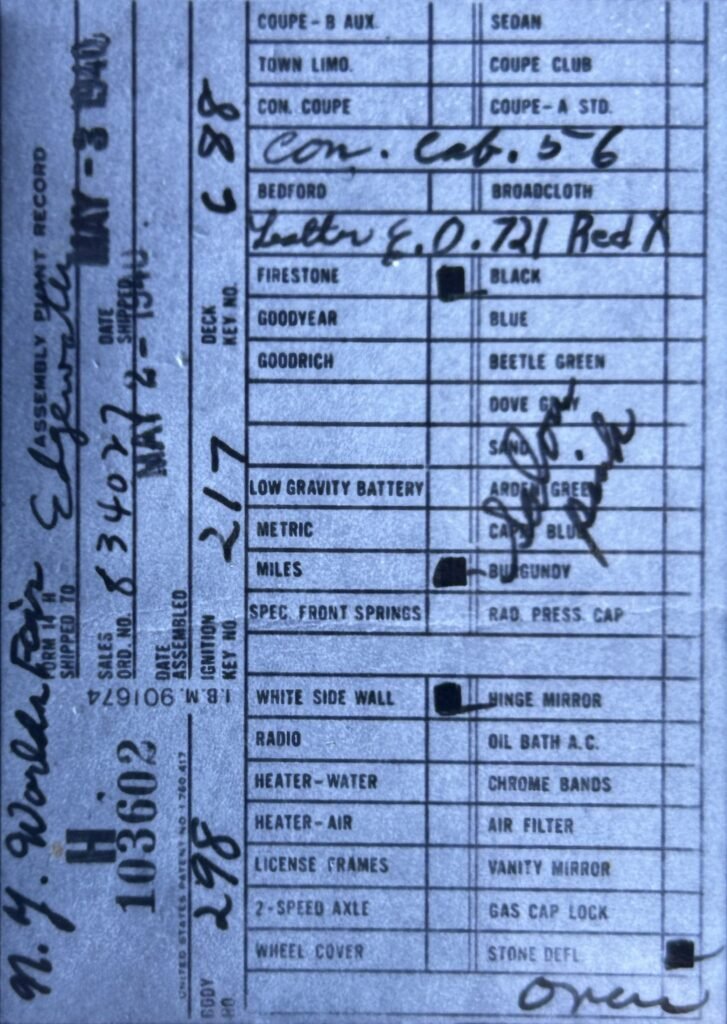 N.Y. Worlds Fair
FORM 14 H ASSEMBLY PLANT RECORD
SHIPPED TO Edgewater
SALES ORD. NO. 834027
DATE SHIPPED MAY - 3 1940
DATE ASSEMBLED MAY 2 - 1940
IGNITION KEY NO. 217
DECK KEY NO. C 88
I.B.M. 901674
H
103602
UNITED STATES PATENT NO. 1,780,417
BODY NO. 298
COUPE - B AUX. SEDAN
TOWN LIMO. COUPE CLUB
CON. COUPE COUPE - A STD.
Con. Cab. 56
BEDFORD BROADCLOTH
Leather E.O. 721 Red X
FIRESTONE BLACK
GOODYEAR BLUE
GOODRICH BEETLE GREEN
DOVE GRAY
SAND
LOW GRAVITY BATTERY ARDEN GREEN
METRIC BLUE
MILES BURGUNDY
pink
SPEC. FRONT SPRINGS RAD. PRESS. CAP
WHITE SIDE WALL HINGE MIRROR
RADIO OIL BATH A.C.
HEATER-WATER CHROME BANDS
HEATER-AIR AIR FILTER
LICENSE FRAMES VANITY MIRROR
2-SPEED AXLE GAS CAP LOCK
WHEEL COVER STONE DEFL.